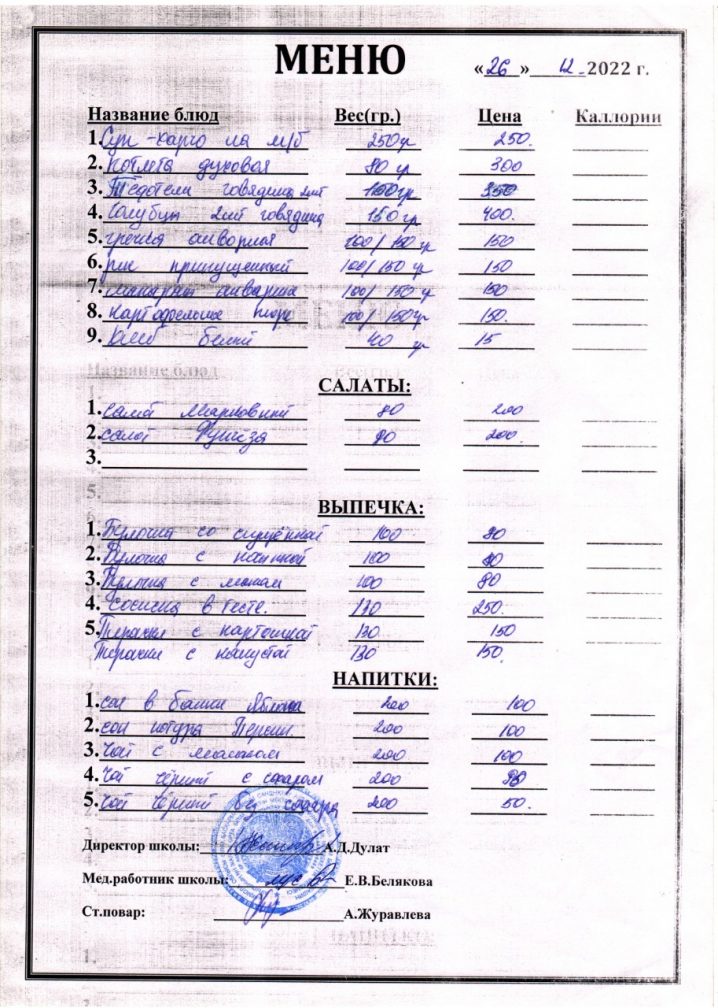 МЕНЮ «26» 12. 2022 г.
Название блюд Вес(гр.) Цена Каллории
1. Суп-харчо на м/б 250гр 250.
2. Котлета духовая 80 гр 300
3. Тефтели говядина 2шт 100гр 350
4. Голубцы 2шт говядина 150 гр 400.
5. гречка отварная 100/150 гр 150
6. рис припущенный 100/150 гр 150
7. макароны отварные 100/150 гр 150
8. Картофельное пюре 100/150гр 150.
9. Хлеб белый 40 гр 15
САЛАТЫ:
1. салат Морковный 80 200
2. салат Фунчеза 80 200.
3.
ВЫПЕЧКА:
1. Булочка со сгущёнкой 100 80
2. Булочка с 100 80
3. Булочка с маком 100 80
4. Сосиска в тесте. 130 250.
5. Пирожки с картошкой 130 150
Пирожки с капустой 130 150.
НАПИТКИ:
1. сок в банке Яблоко 200 100
2. сок натура Персик 200 100
3. Чай с молоком 200 100
4. Чай чёрный с сахаром 200
5. Чай чёрный без сахара 200 50.
Директор школы: А.Д.Дулат
Мед.работник школы: Е.В.Белякова
Ст.повар: А.Журавлева